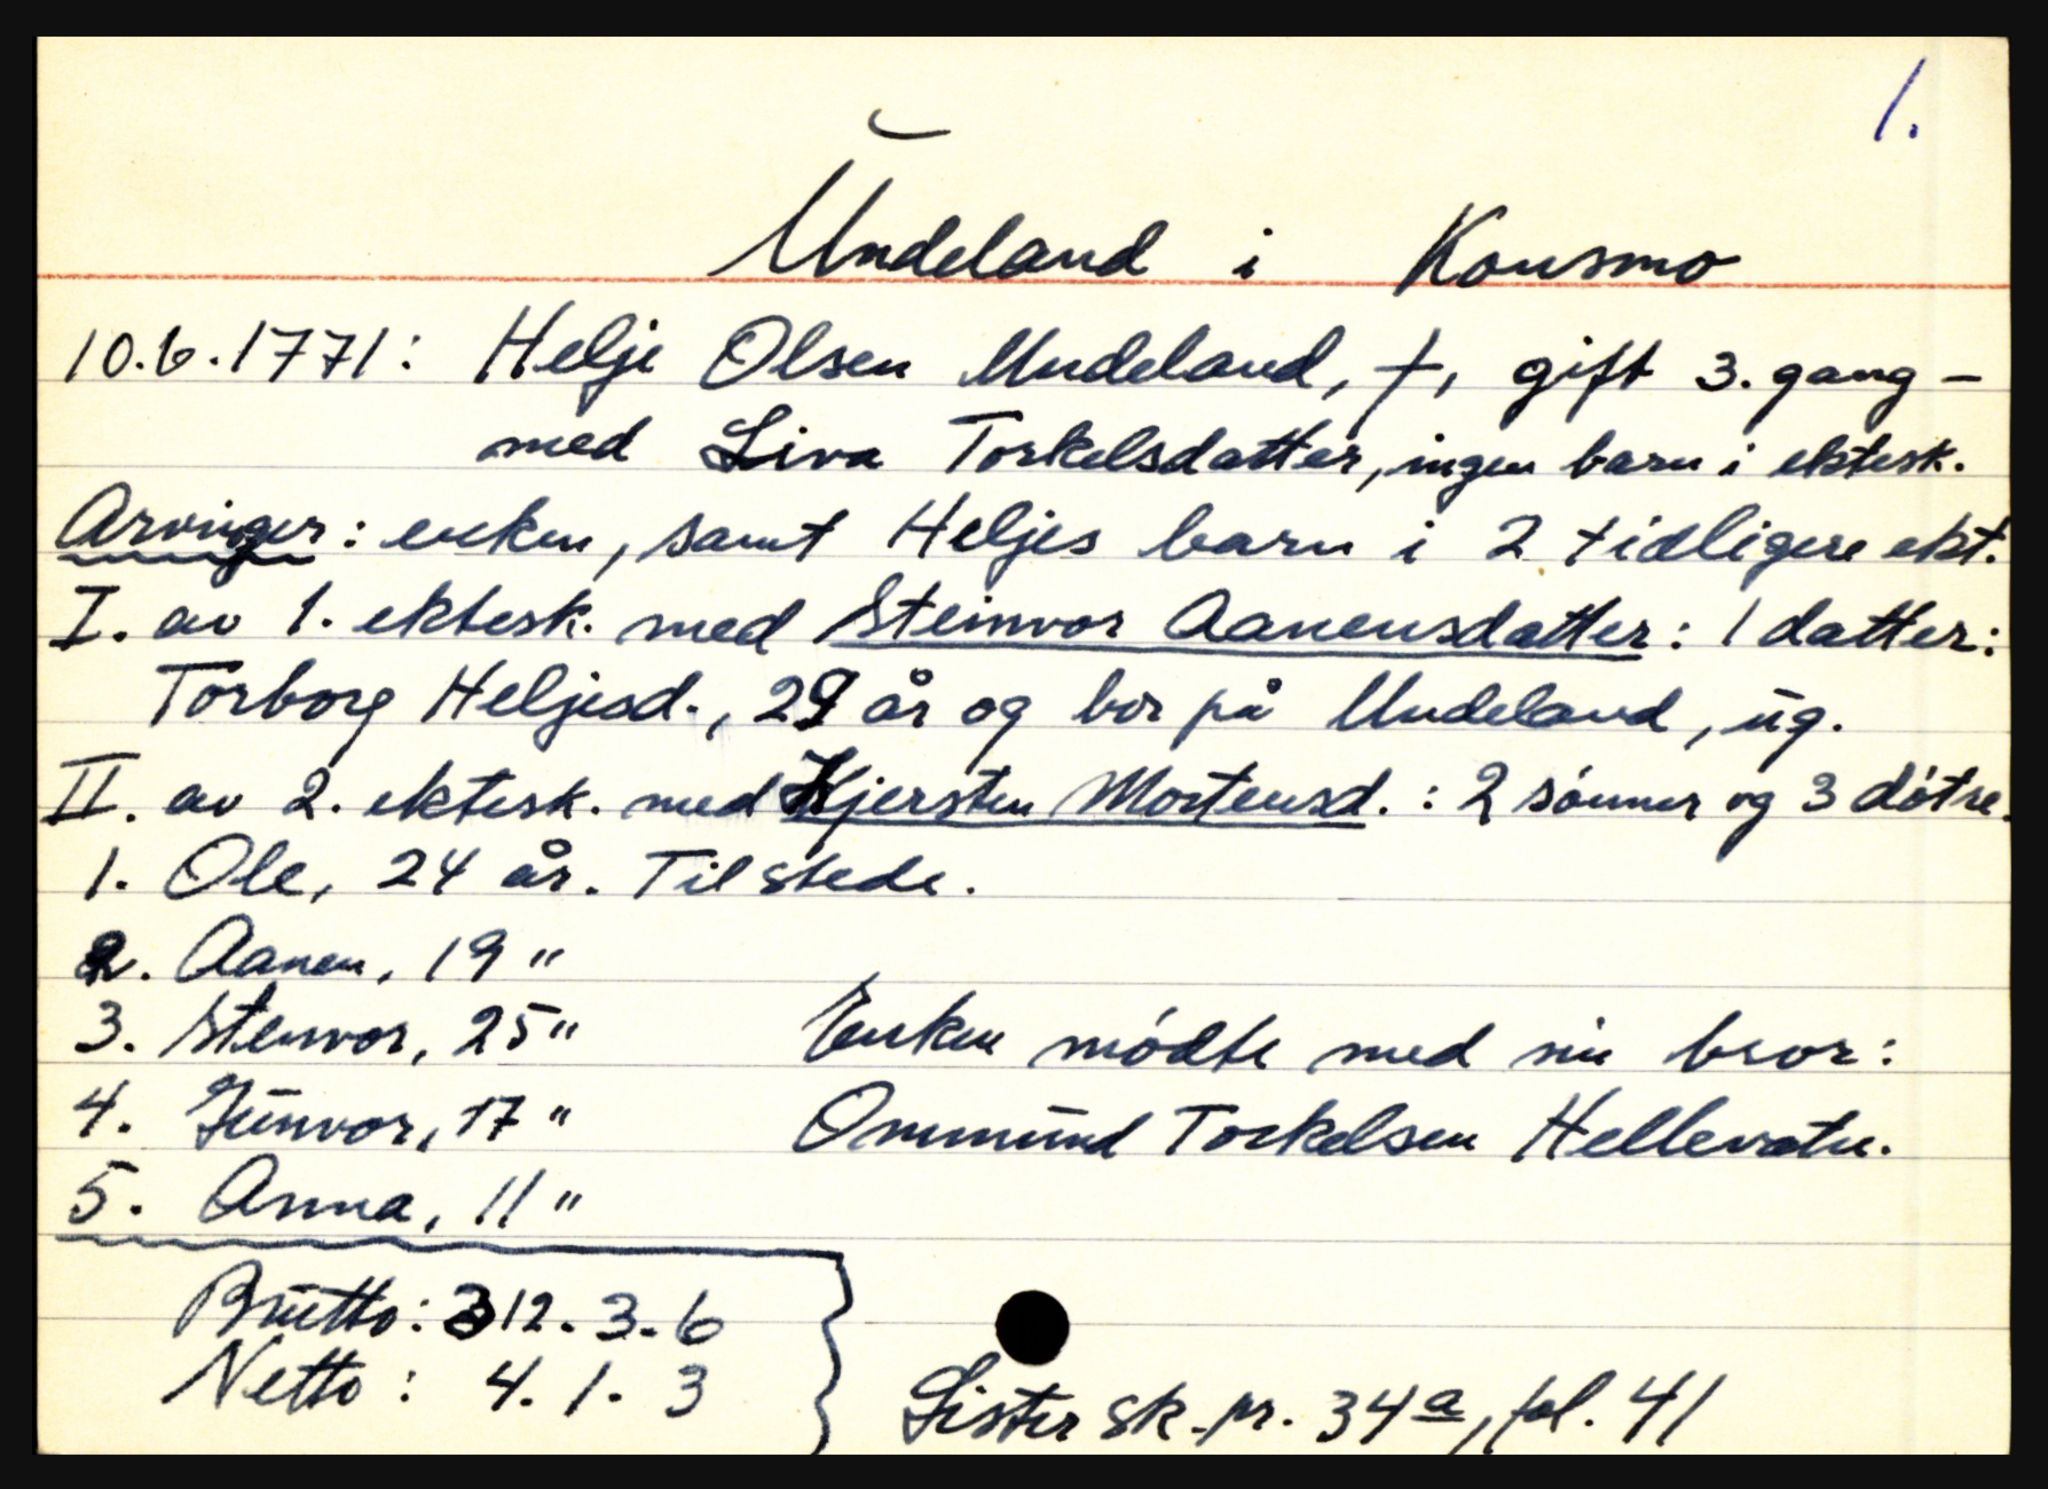 1.
Undeland i Konsmo
10.6.1771: Helje Olsen Undeland, †, gift 3. gang -
med Liva Torkelsdatter, ingen barn i ektesk.
Arvinger: enken, samt Heljes barn i 2 tidligere ekt.
I. av 1. ektesk. med Steinvor Aanensdatter: 1 datter:
Torborg Heljesd., 29 år og bor på Undeland, ug.
II. av 2. ektesk. med Kjersten Mortensd.: 2 sønner og 3 døtre.
1. Ole, 24 år. Til stede.
2. Aanen, 19 "
3. Stenvor, 25 "
4. Junvor, 17 "
5. Anna, 11 "
Enken mødte med sin bror:
Ommund Torkelsen Hellevatn.
Brutto: 312. 3. 6
Netto: 4. 1. 3
Lister sk.pr. 34a, fol. 41